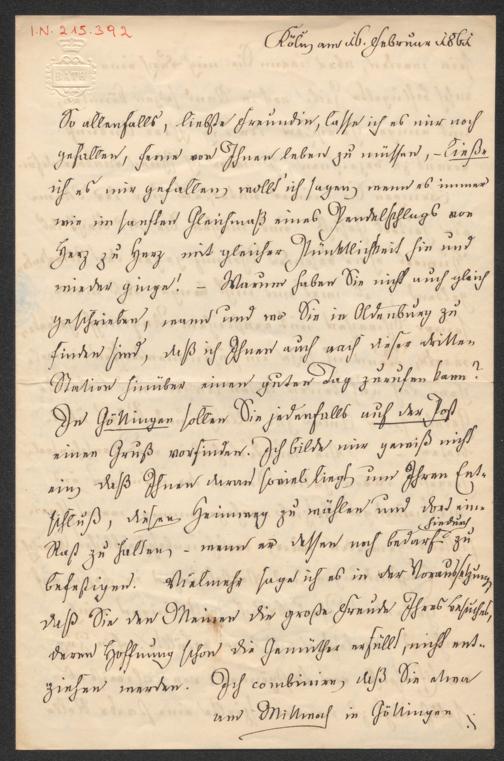 I.N. 215.392
BATH
Köln am 16. Februar 1861
So allenfalls, liebste Freundin, lasse ich es mir noch
gefallen, ferne von Ihnen leben zu müssen, – ließe
ich es mir gefallen, wollt' ich sagen, wenn es immer
wie im sanften Gleichmaß eines Pendelschlags von
Herz zu Herz mit gleicher Pünktlichkeit hin und
wieder ginge! – Warum haben Sie nicht auch gleich
geschrieben, wann und wo Sie in Oldenburg zu
finden sind, daß ich Ihnen auch nach dieser dritten
Station hinüber einen guten Tag zurufen kann?
In Göttingen sollen Sie jedenfalls auf der Post
einen Gruß vorfinden. Ich bilde mir gewiß nicht
ein, daß Ihnen daran soviel liegt, um Ihren Ent-
schluß, diesen Heimweg zu wählen und dort eine
Rast zu halten, – wenn er dessen noch bedarf – hiedurch zu
befestigen. Vielmehr sage ich es in der Voraussetzung,
daß Sie den Meinen die große Freude Ihres Besuches,
deren Hoffnung schon die Gemüther erfüllt, nicht ent-
ziehen werden. Ich combinire, daß Sie etwa
am Mittwoch in Göttingen